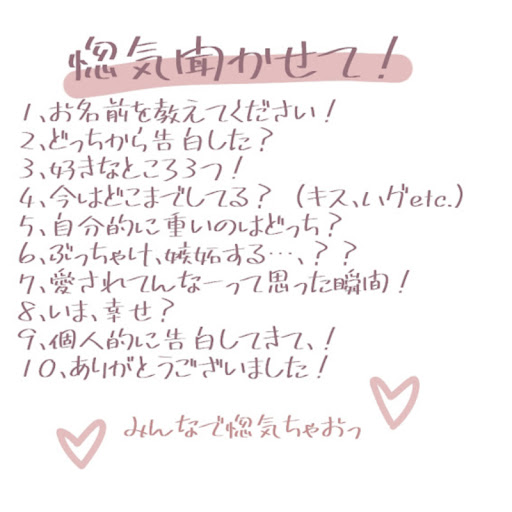 惚気聞かせて！
1、お名前を教えてください！
2、どっちから告白した？
3、好きなところ3つ！
4、今はどこまでしてる？（キス、ハグetc.）
5、自分的に重いのはどっち？
6、ぶっちゃけ、嫉妬する…、？？
7、愛されてんなーって思った瞬間！
8、いま、幸せ？
9、個人的に告白してきて、！
10、ありがとうございました！
みんなで惚気ちゃおっ